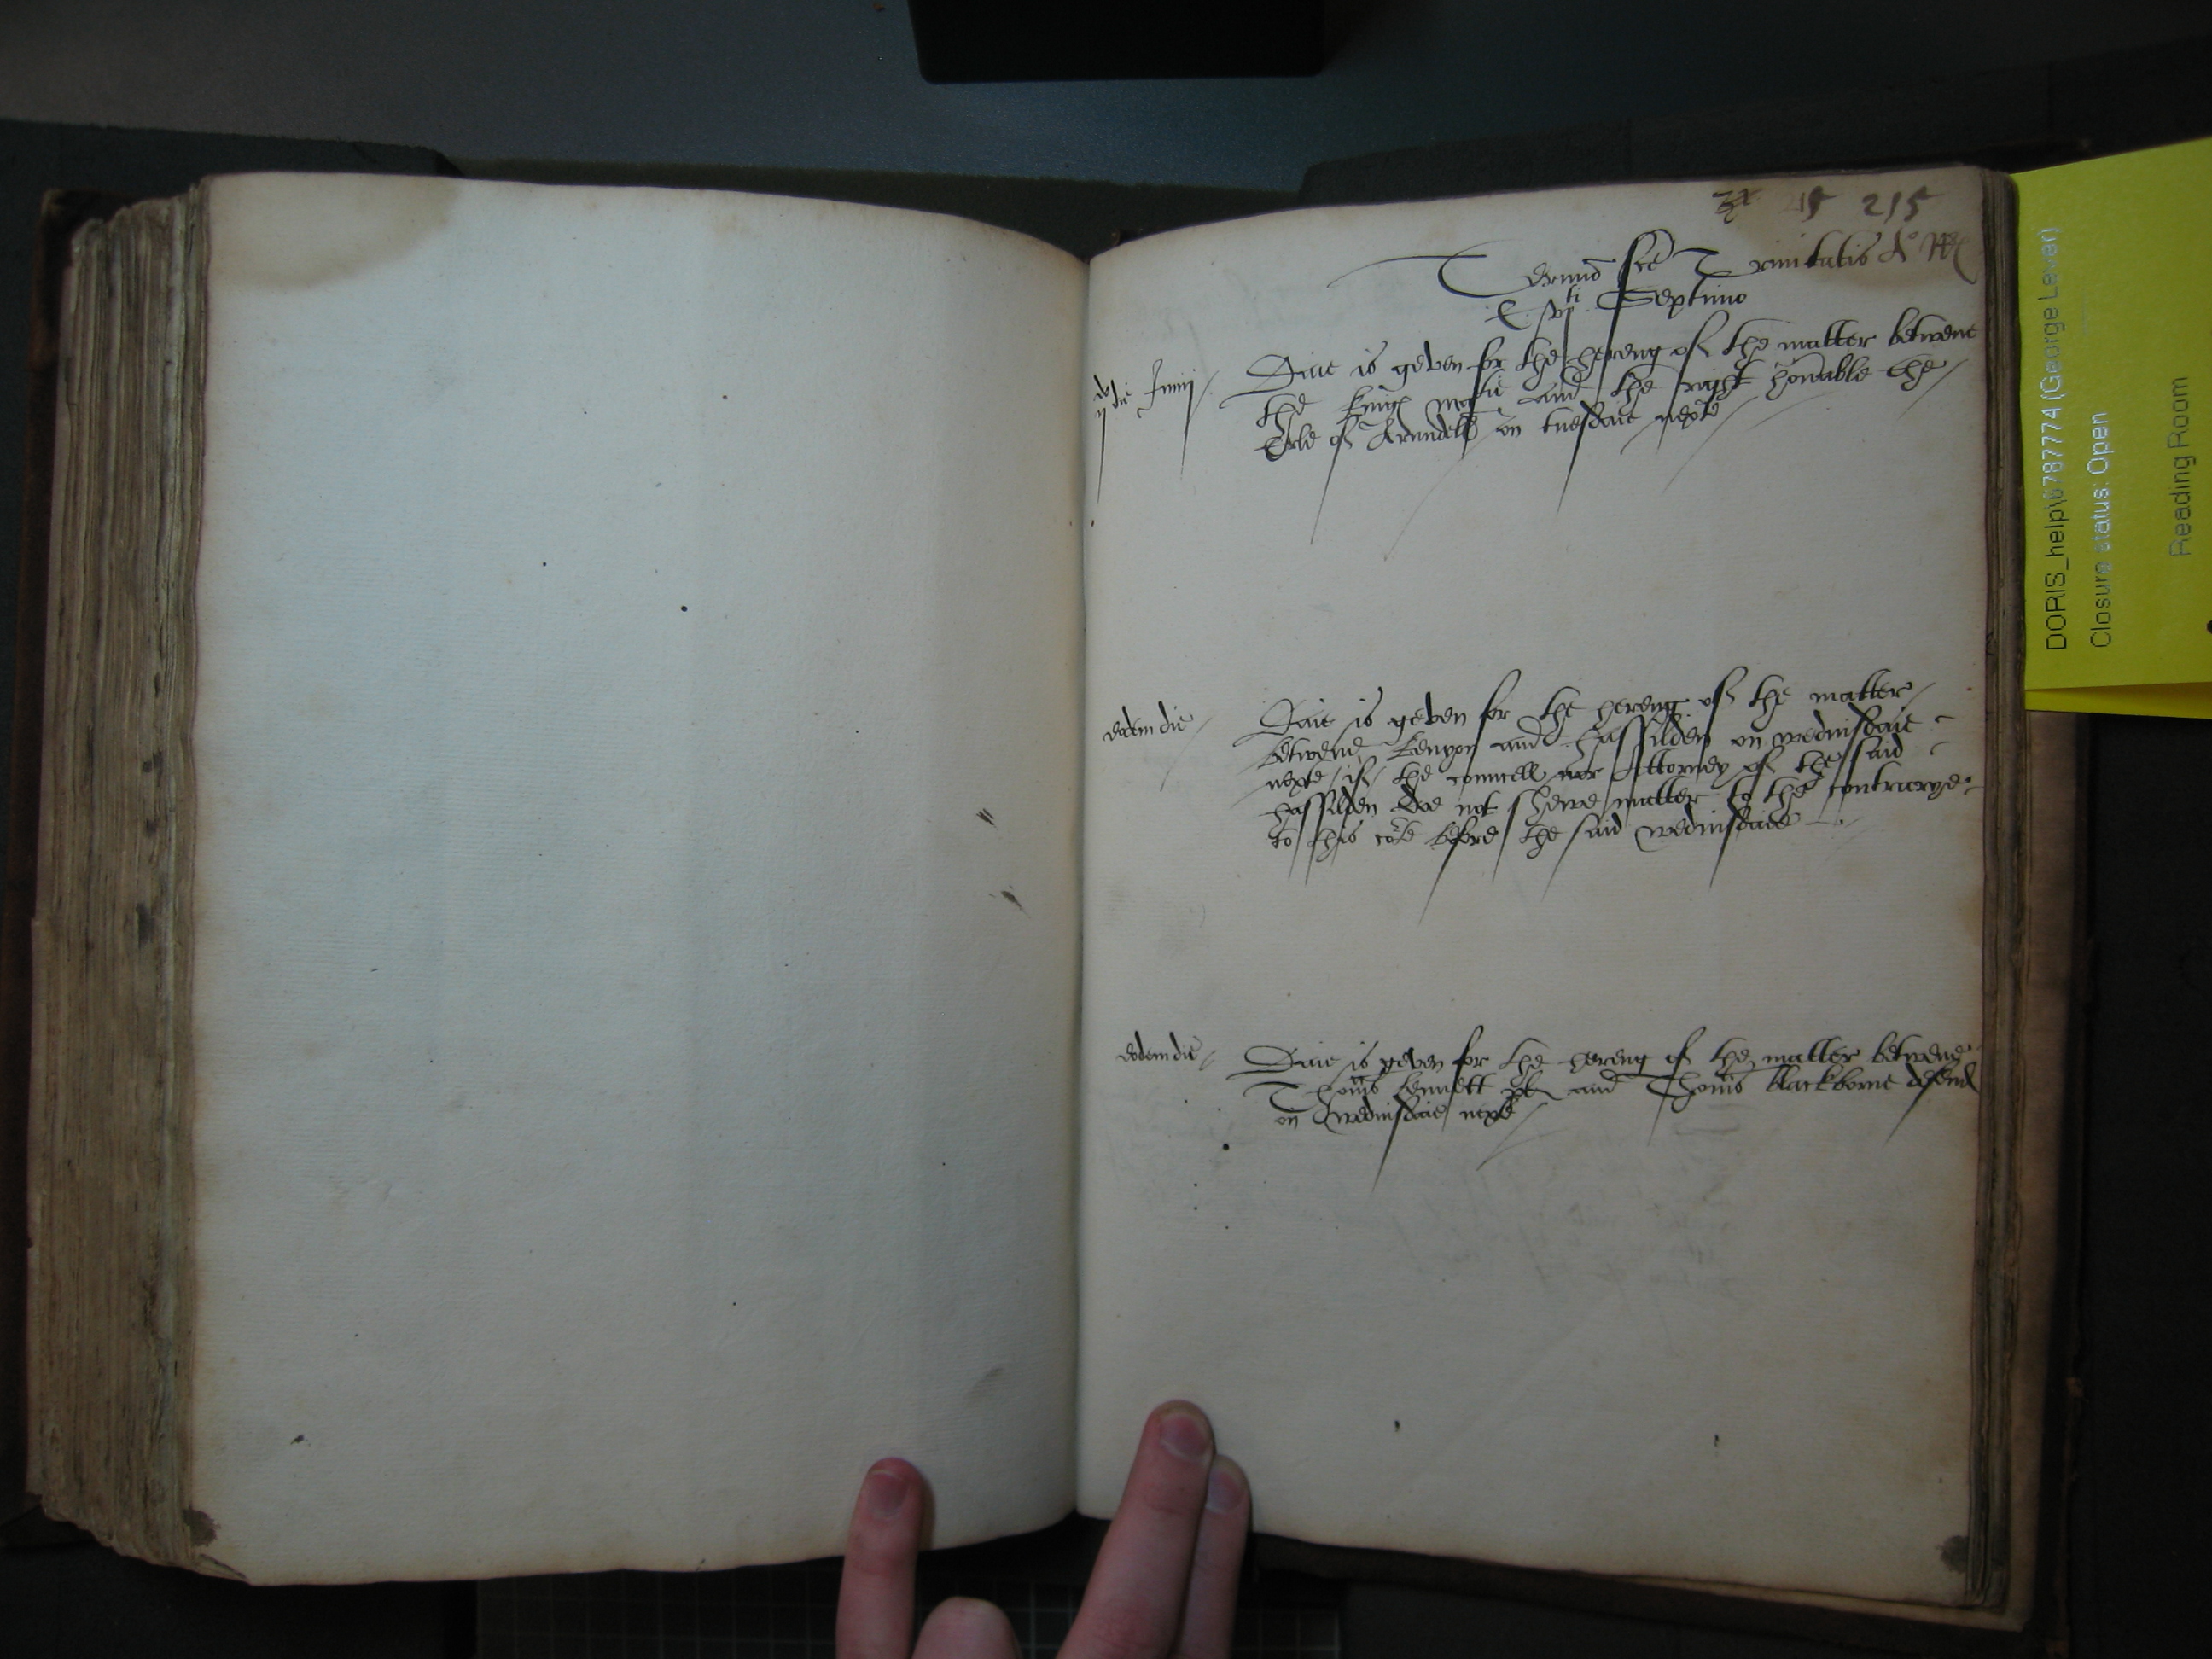 215 215
Termino Sce Trinitatis Ao RR
E vjti Septimo
ij die Junij
Daie is geven for the hereng of the matter betwene
the kinges matie and the right honable the
Erle of Arundell on tuesdaie nexte
eodem die
Daie is geven for the hereng of the matter
betwene kenyon and hassilden on wednisdaie
nexte if the councell nor Attorney of the said
hassilden doe not shewe matter to the contrarye
to this cort before the said wednisdaie
eodem die
Daie is geven for the hereng of the matter betwene
Thomas kennett pl and Thomas blackborne defend
on wednisdaie next
DORIS_help\6787774 (George Lever)
Closure status: Open
Reading Room